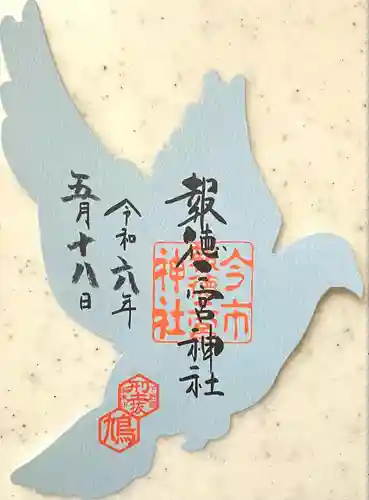 報徳二宮神社
令和六年
五月十八日
今市
報徳二宮
神社
鳩